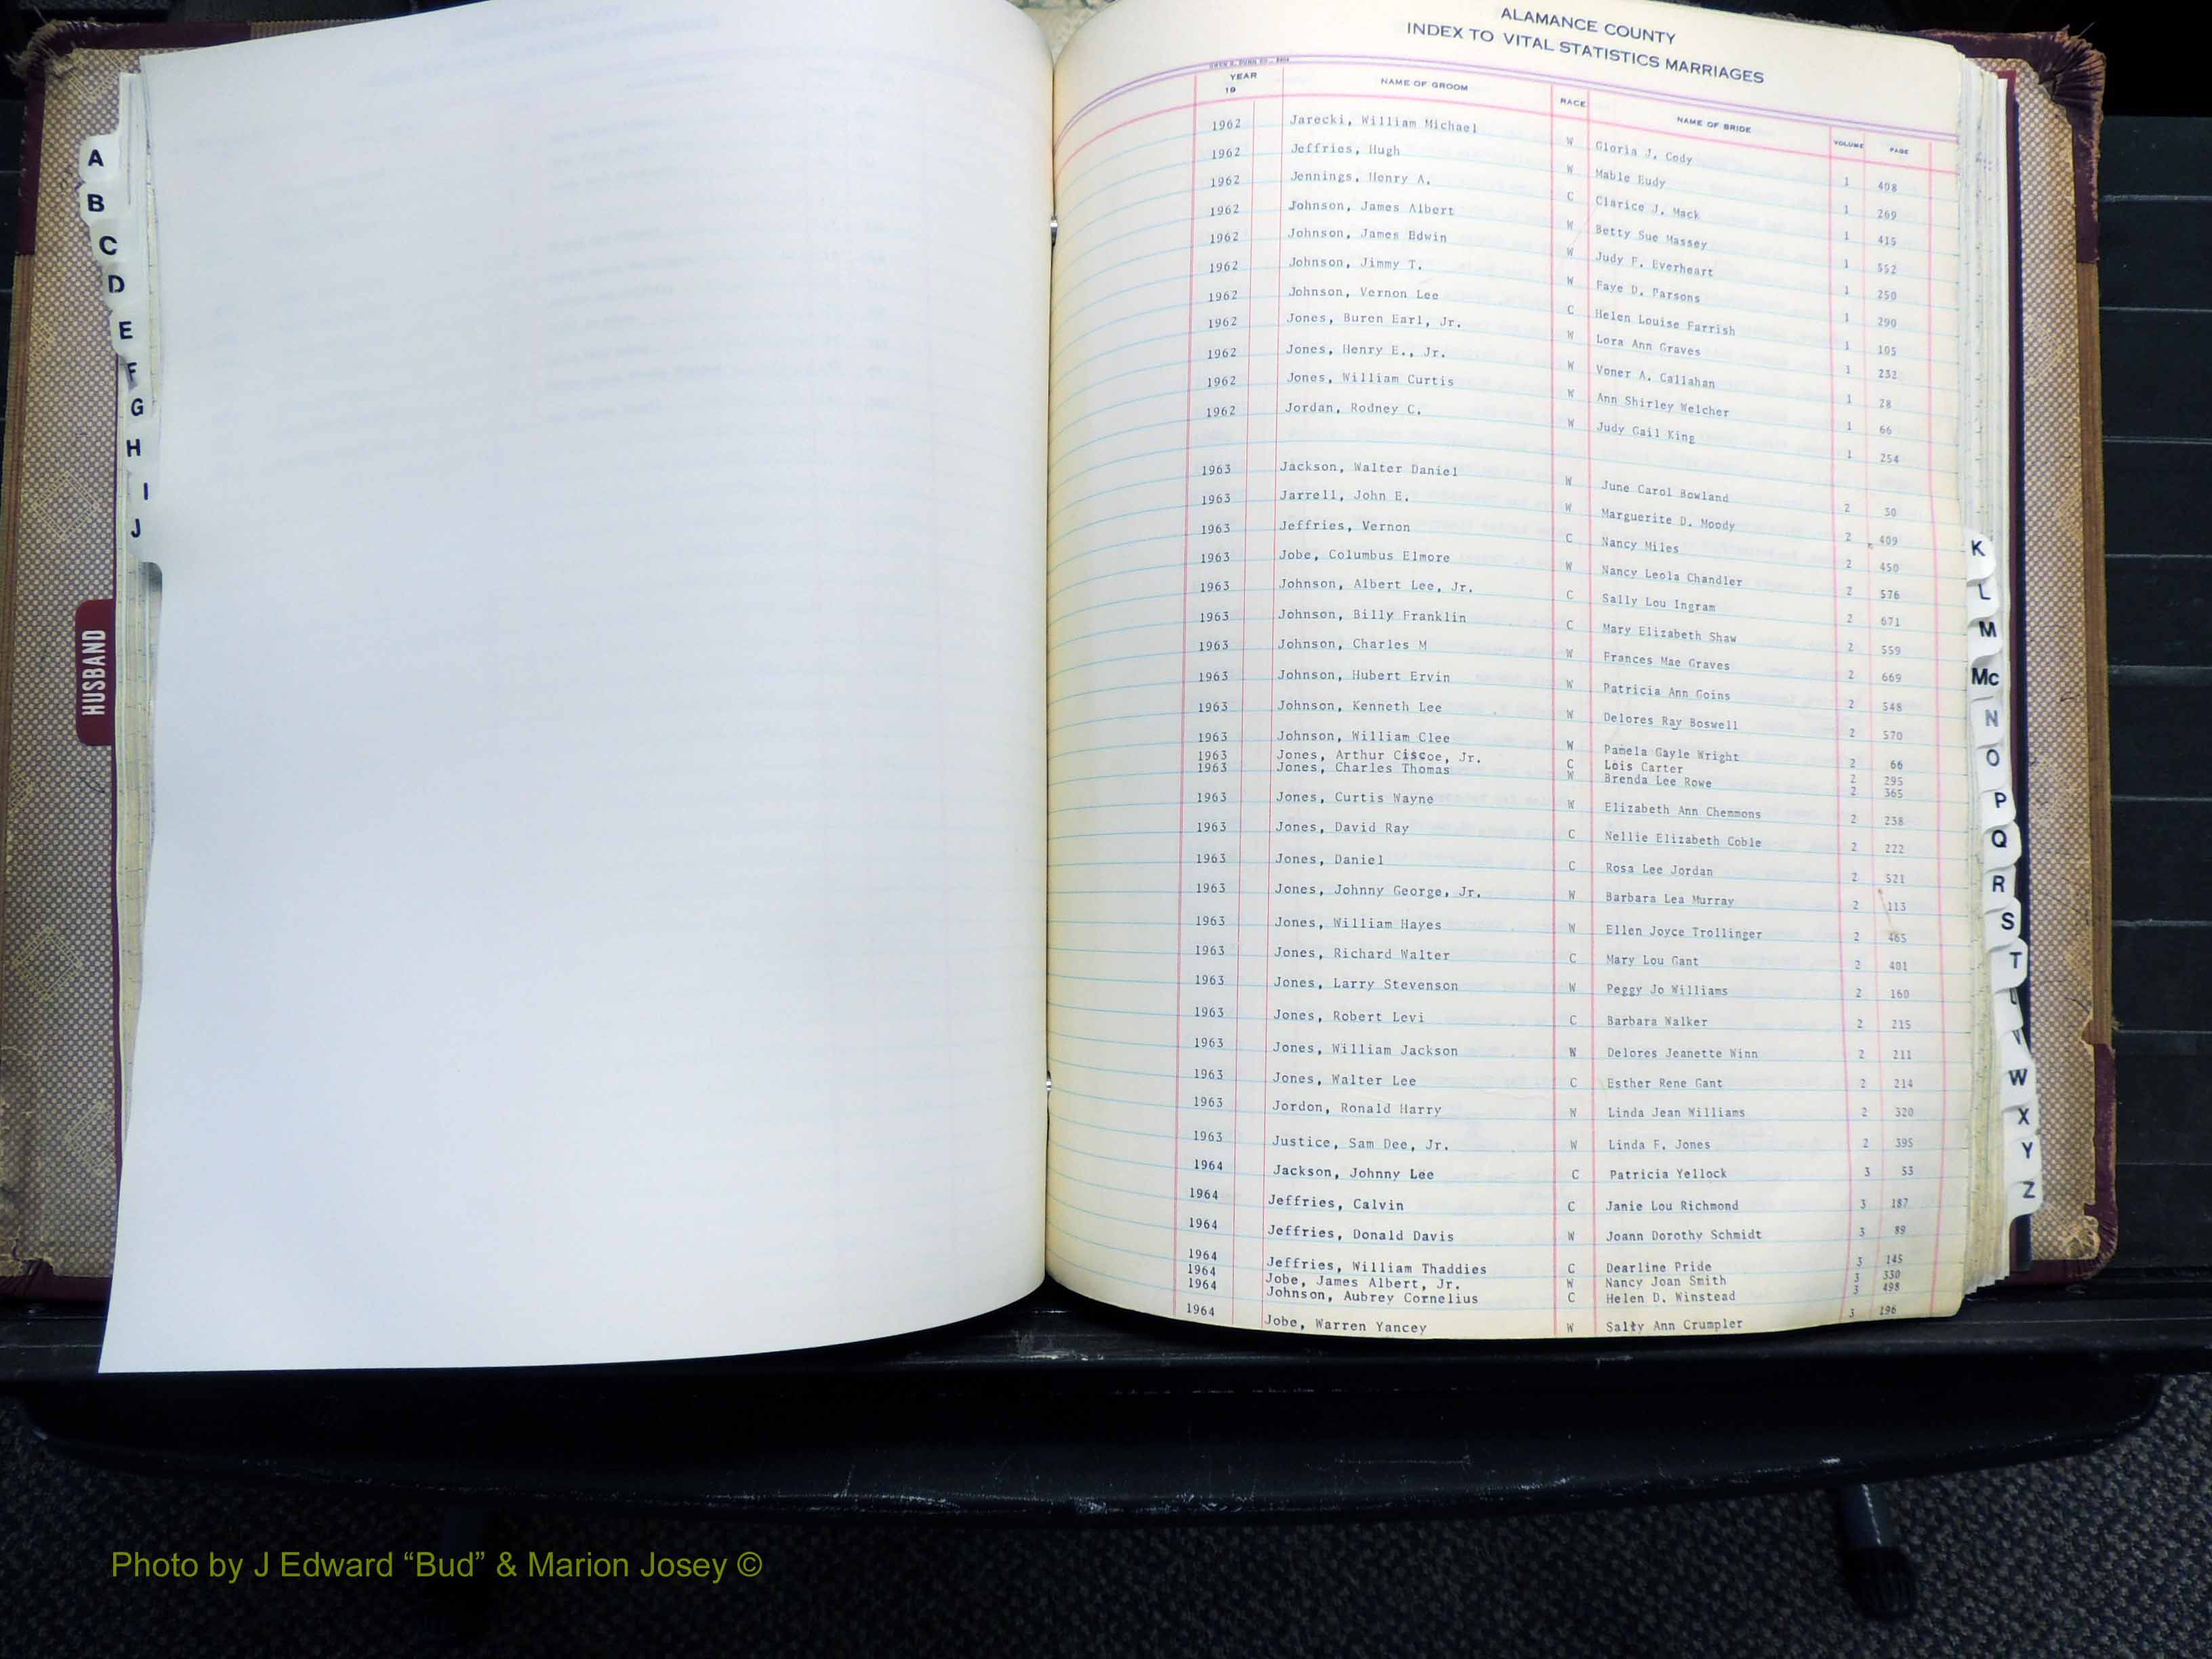 ALAMANCE COUNTY
INDEX TO VITAL STATISTICS MARRIAGES
YEAR NAME OF GROOM RACE NAME OF BRIDE VOLUME PAGE
19
1962 Jarecki, William Michael W Gloria J. Cody 1 408
1962 Jeffries, Hugh W Mable Eudy 1 269
1962 Jennings, Henry A. C Clarice J. Mack 1 415
1962 Johnson, James Albert W Betty Sue Massey 1 552
1962 Johnson, James Edwin W Judy F. Everheart 1 250
1962 Johnson, Jimmy T. W Faye D. Parsons 1 290
1962 Johnson, Vernon Lee C Helen Louise Farrish 1 105
1962 Jones, Buren Earl, Jr. W Lora Ann Graves 1 232
1962 Jones, Henry E., Jr. W Voner A. Callahan 1 28
1962 Jones, William Curtis W Ann Shirley Welcher 1 66
1962 Jordan, Rodney C. W Judy Gail King 1 254
1963 Jackson, Walter Daniel W June Carol Bowland 2 30
1963 Jarrell, John E. W Marguerite D. Moody 2 409
1963 Jeffries, Vernon C Nancy Miles 2 450
1963 Jobe, Columbus Elmore W Nancy Leola Chandler 2 576
1963 Johnson, Albert Lee, Jr. C Sally Lou Ingram 2 671
1963 Johnson, Billy Franklin C Mary Elizabeth Shaw 2 559
1963 Johnson, Charles M W Frances Mae Graves 2 669
1963 Johnson, Hubert Ervin W Patricia Ann Goins 2 548
1963 Johnson, Kenneth Lee W Delores Ray Boswell 2 570
1963 Johnson, William Clee W Pamela Gayle Wright 2 66
1963 Jones, Arthur Ciscoe, Jr. C Lois Carter 2 295
1963 Jones, Charles Thomas W Brenda Lee Rowe 2 365
1963 Jones, Curtis Wayne W Elizabeth Ann Chemmons 2 238
1963 Jones, David Ray C Nellie Elizabeth Coble 2 222
1963 Jones, Daniel C Rosa Lee Jordan 2 521
1963 Jones, Johnny George, Jr. W Barbara Lea Murray 2 113
1963 Jones, William Hayes W Ellen Joyce Trollinger 2 465
1963 Jones, Richard Walter C Mary Lou Gant 2 401
1963 Jones, Larry Stevenson W Peggy Jo Williams 2 160
1963 Jones, Robert Levi C Barbara Walker 2 215
1963 Jones, William Jackson W Delores Jeanette Winn 2 211
1963 Jones, Walter Lee C Esther Rene Gant 2 214
1963 Jordon, Ronald Harry W Linda Jean Williams 2 320
1963 Justice, Sam Dee, Jr. W Linda F. Jones 2 395
1964 Jackson, Johnny Lee C Patricia Yellock 3 53
1964 Jeffries, Calvin C Janie Lou Richmond 3 187
1964 Jeffries, Donald Davis W Joann Dorothy Schmidt 3 89
1964 Jeffries, William Thaddies C Dearline Pride 3 145
1964 Jobe, James Albert, Jr. W Nancy Joan Smith 3 330
1964 Johnson, Aubrey Cornelius C Helen D. Winstead 3 498
1964 Jobe, Warren Yancey W Sally Ann Crumpler 3 196
A
B
C
D
E
F
G
H
I
J
HUSBAND
K
L
M
Mc
N
O
P
Q
R
S
T
W
X
Y
Z
Photo by J Edward “Bud” & Marion Josey ©